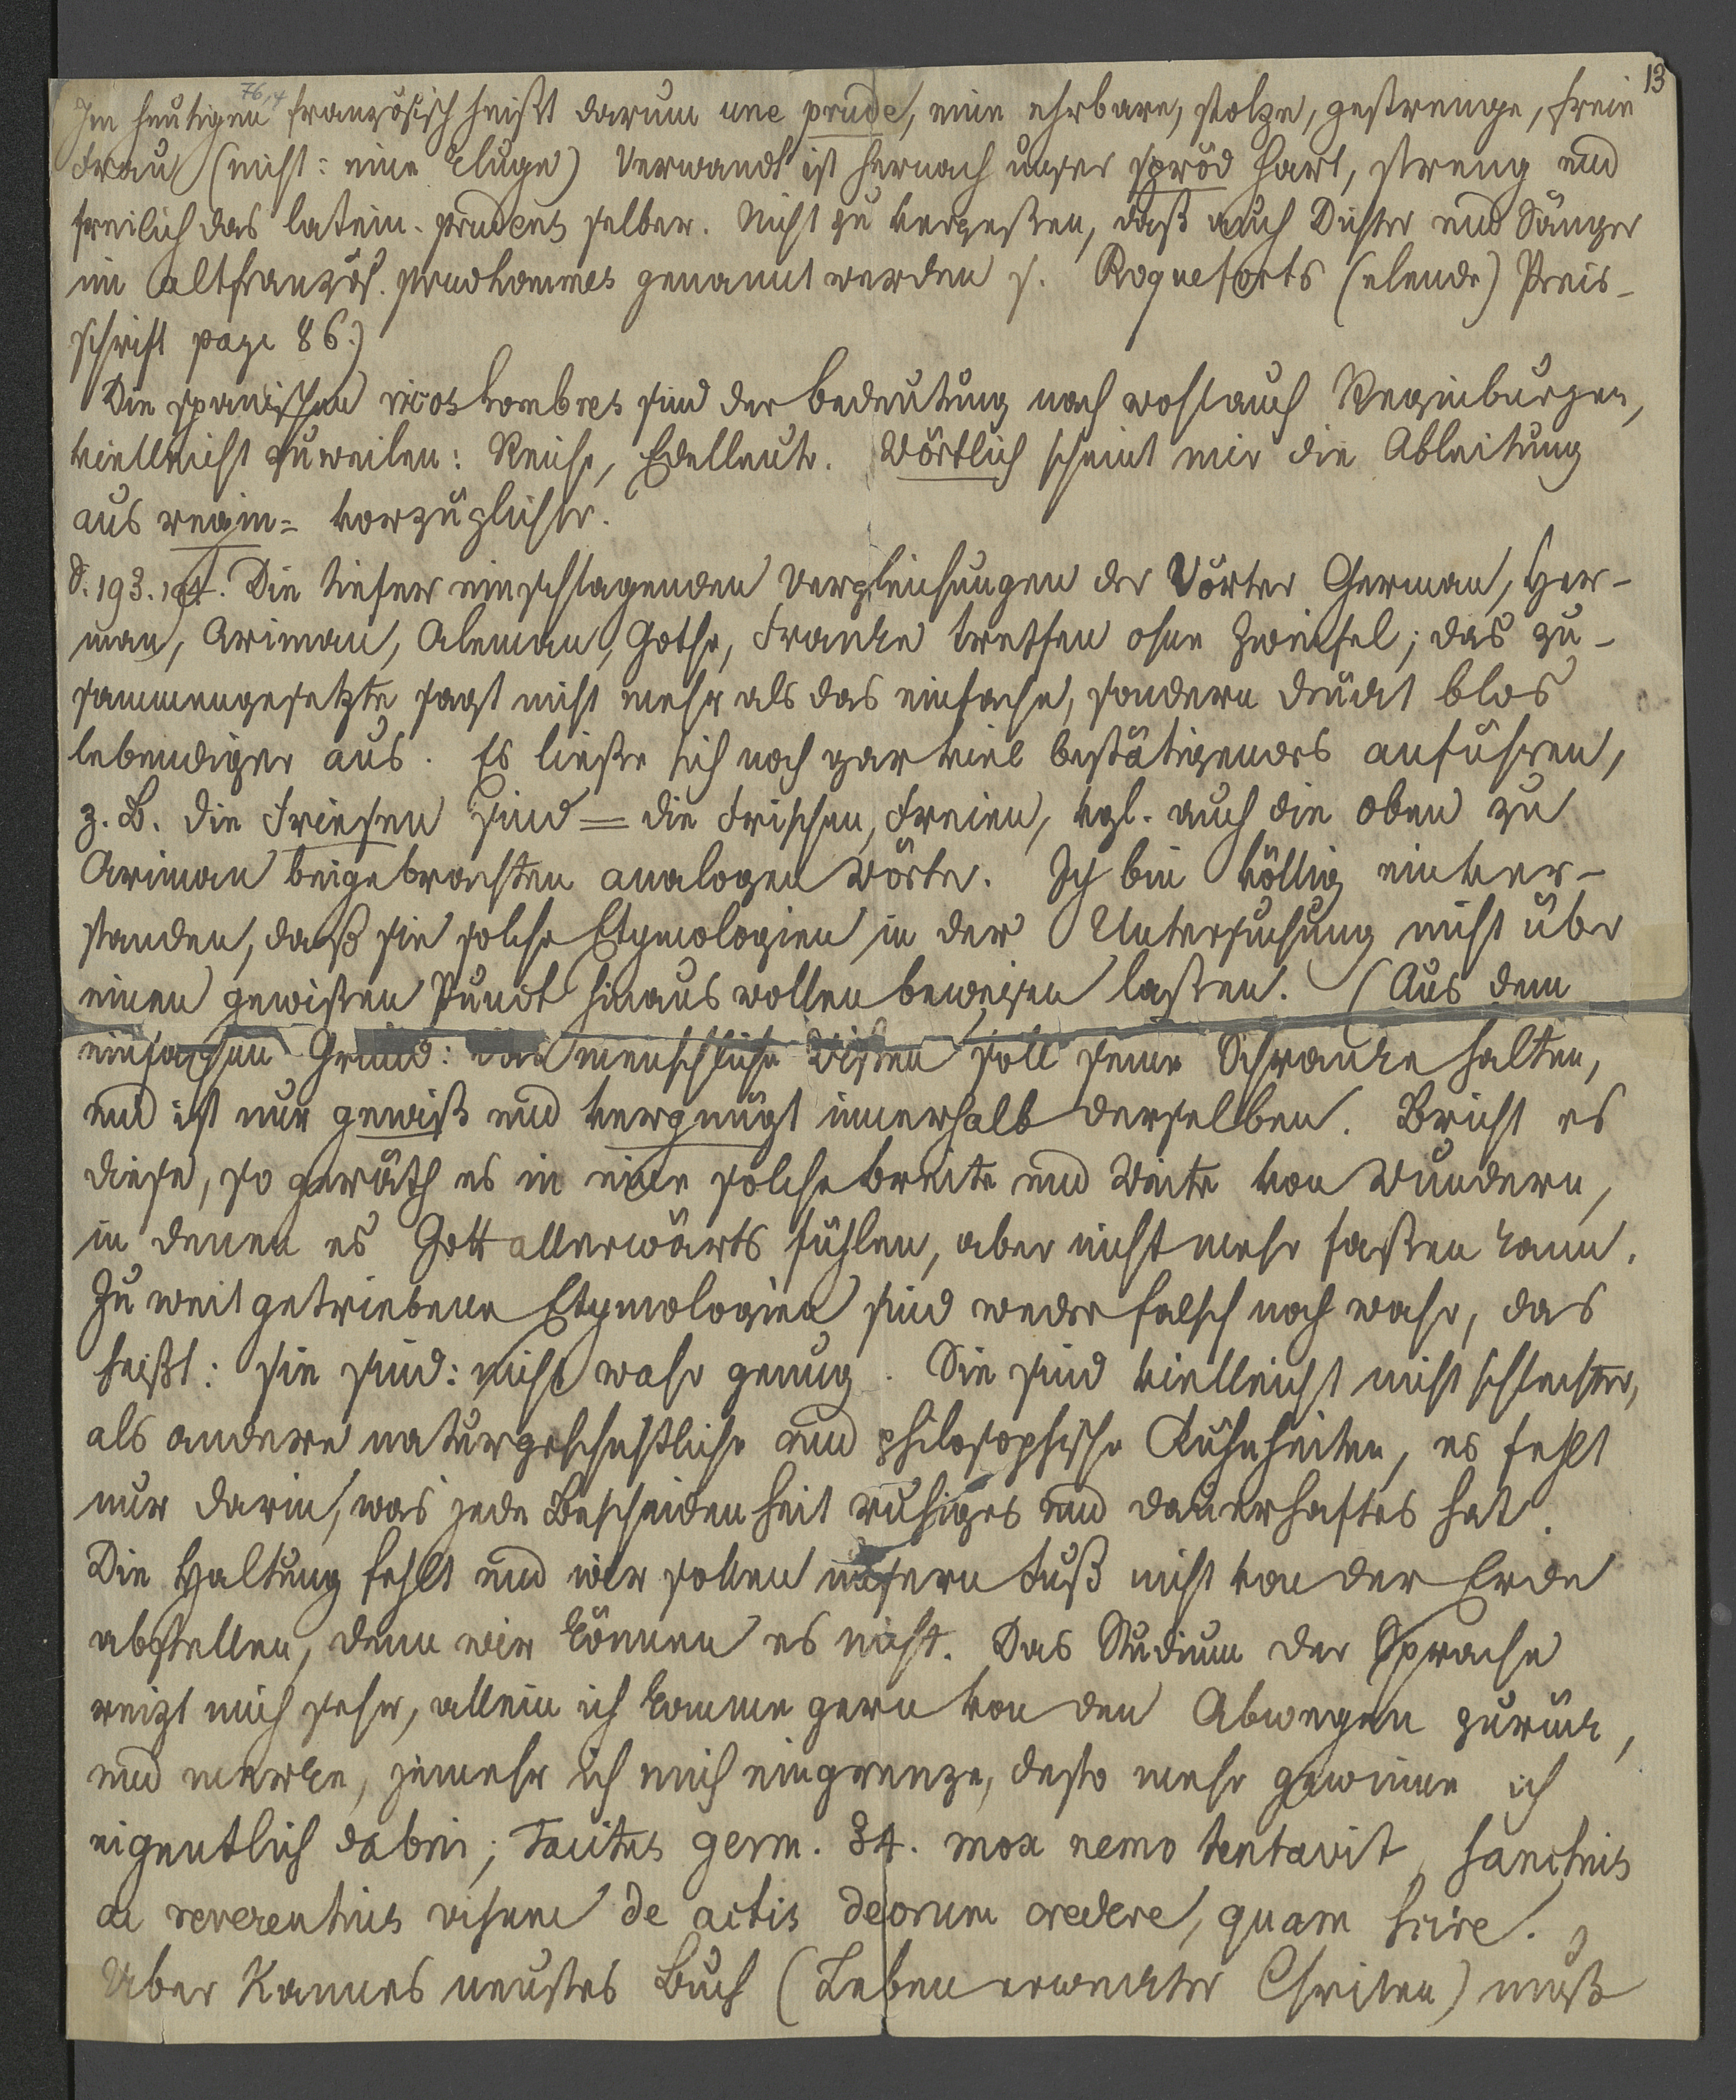 13
76,4
Im heutigen französisch heißt darum une prude, eine ehrbare, stolze, gestrenge, freie
Frau (nicht: eine kluge) Verwandt ist hernach unser spröd hart, streng und
freilich das latein. prudens selber. Nicht zu vergeßen, daß auch Dichter und Sänger
im altfranzös. prudhommes genannt werden s. Roqueforts (elende) Preis-
schrift page 86.)
Die spanischen ricos hombres sind der Bedeutung nach wohl auch Reginburgen,
vielleicht zuweilen: Reiche, Edelleute. Wörtlich scheint mir die Ableitung
aus regin= vorzüglicher.
S. 193. 194. Die tiefer einschlagenden Vergleichungen der Wörter German, Her-
man, Ariman, Aleman, Gothe, Franke treffen ohne Zweifel; das zu-
sammengesetzte sagt nicht mehr als das einfache, sondern drückt blos
lebendiger aus. Es ließe sich noch gar viel bestätigendes anführen,
z. B. die Friesen sind = die Frischen, Freien, vgl. auch die oben zu
Ariman beigebrachten analogen Wörter. Ich bin völlig einver-
standen, daß sie solche Etymologien in der Untersuchung nicht über
einen gewißen Punct hinaus wollen beweisen laßen. (Aus dem
einfachen Grund: das menschliche Wißen soll seine Schranke halten,
und ist nur gewiß und vergnügt innerhalb derselben. Bricht es
diese, so geräth es in eine solche Breite und Weite von Wundern,
in denen es Gott allerwärts fühlen, aber nicht mehr faßen kann.
Zu weit getriebene Etymologien sind weder falsch noch wahr, das
heißt: sie sind: nicht wahr genug. Sie sind vielleicht nicht schlechter,
als andere naturgeschichtliche und philosophische Kühnheiten, es fehlt
nur darin, was jede Bescheidenheit ruhiges und dauerhaftes hat.
Die Haltung fehlt und wir sollen unsern Fuß nicht von der Erde
abstellen, denn wir können es nicht. Das Studium der Sprache
reizt mich sehr, allein ich komme gern von den Abwegen zurück,
und merke, jemehr ich mich eingrenze, desto mehr gewinne ich
eigentlich dabei; Tacitus germ. 34. mox nemo tentavit, sanctius
ac reverentius visum de actis deorum credere, quam scire.)
Über Kannes neustes Buch (Leben erweckter Christen) muß